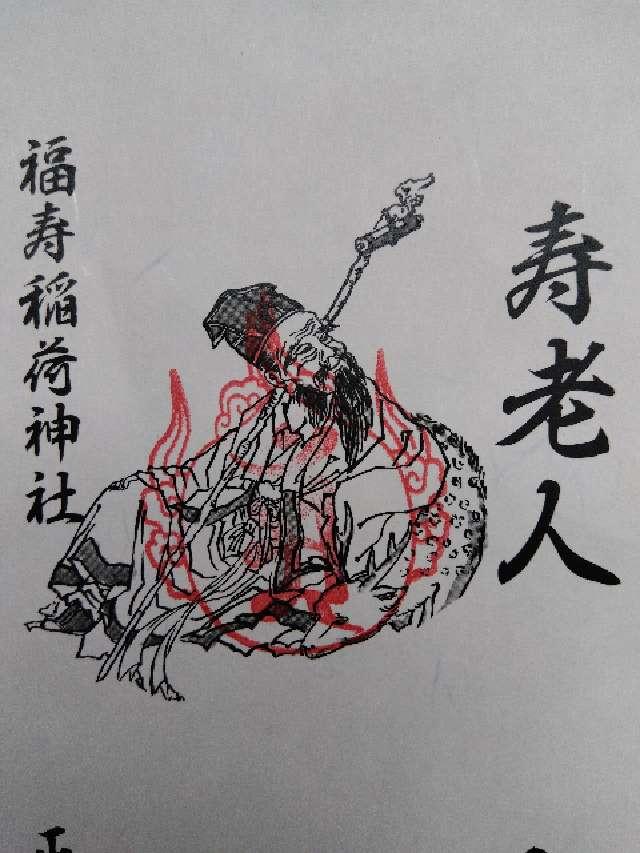 寿老人
福寿稲荷神社